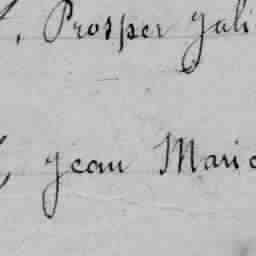 , Prosper Gali
Jean Marie